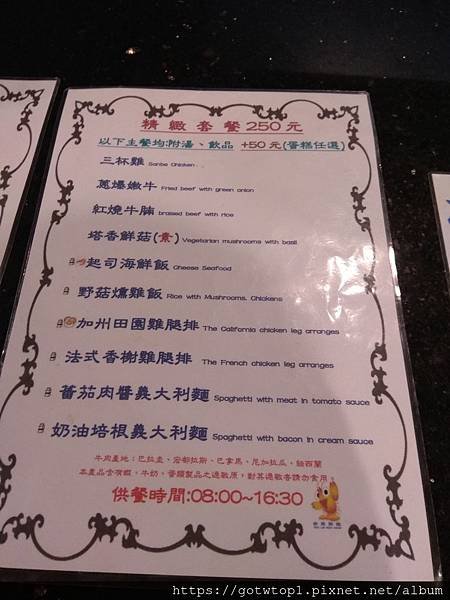 精緻套餐250元
以下主餐均附湯、飲品 +50元(蛋糕任選)
三杯雞 Sanbe Chicken
蔥爆嫩牛 Fried beef with green onion
紅燒牛腩 braised beef with rice
塔香鮮菇(素) Vegetarian mushrooms with basil
起司海鮮飯 Cheese Seafood
野菇燻雞飯 Rice with Mushrooms, Chickens
加州田園雞腿排 The California chicken leg arranges
法式香榭雞腿排 The French chicken leg arranges
蕃茄肉醬義大利麵 Spaghetti with meat in tomato sauce
奶油培根義大利麵 Spaghetti with bacon in cream sauce
牛肉產地：巴拉圭、宏都拉斯、巴拿馬、尼加拉瓜、紐西蘭
本產品含有蝦、牛奶、醬類製品之過敏原，對其過敏者請勿食用。
供餐時間:08:00~16:30
https://gotwtop1.pixnet.net/album